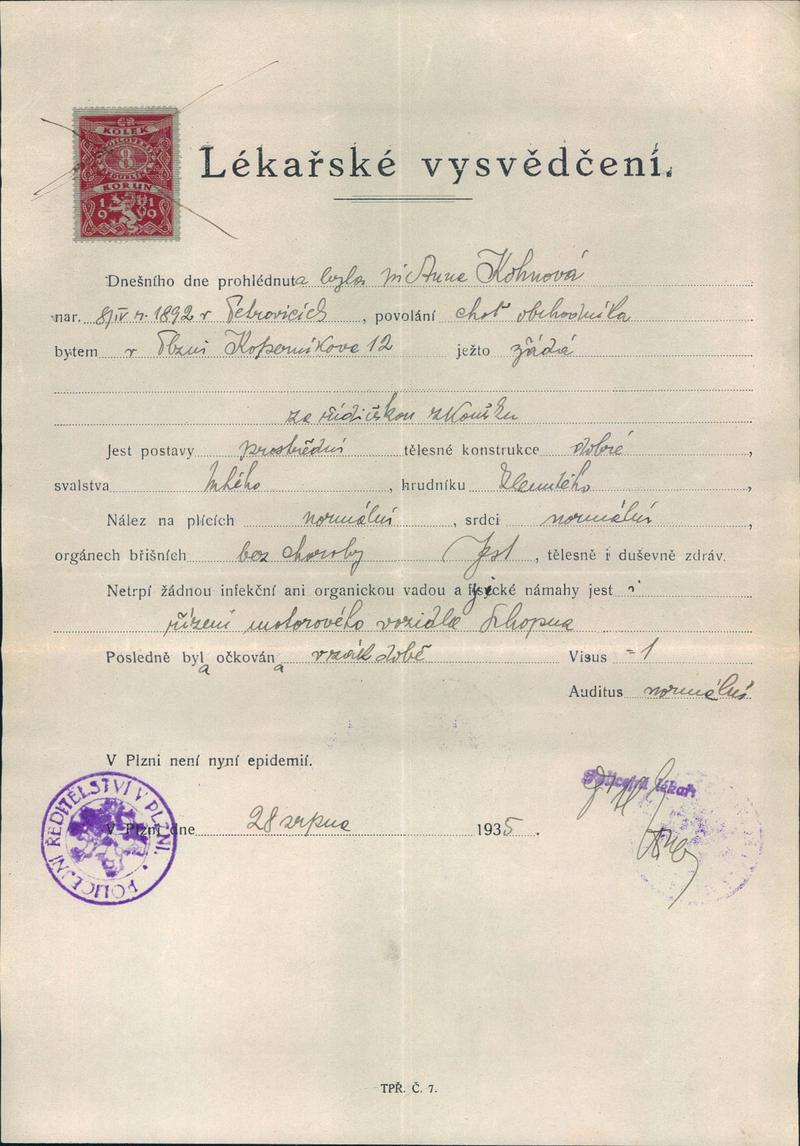 KOLEK
8
KORUN
1919
Lékařské vysvědčení.
Dnešního dne prohlédnuta byla pí Anna Kohnová
nar. 8/IV r. 1892 v Petrovicích, povolání choť obchodníka
bytem v Plzni Koperníkova 12 ježto žádá
za řidičskou zkoušku
Jest postavy prostřední tělesné konstrukce dobré,
svalstva, hrudníku klenutého,
Nález na plících normální, srdci normální,
orgánech břišních bez choroby Jest, tělesně i duševně zdráv.
Netrpí žádnou infekční ani organickou vadou a fysické námahy jest
řízení motorového vozidla schopna
Posledně byla očkována době Visus =1
Auditus normální
V Plzni není nyní epidemií.
V Plzni dne 28 srpna 1935.
POLICEJNÍ ŘEDITELSTVÍ V PLZNI.
Policejní lékař
TPŘ. Č. 7.